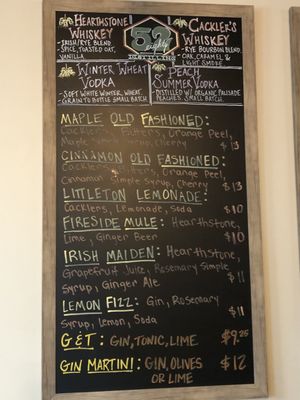 Hearthstone
Whiskey
- Irish/Rye Blend
- Spice, Toasted Oat,
Vanilla
52
eighty
Distilling
Cackler's
Whiskey
- Rye Bourbon Blend
- Oak, Caramel &
Light Smoke
Winter Wheat
Vodka
- Soft White Winter, Wheat,
Grain to Bottle Small Batch
Peach
Summer Vodka
- Distilled w/ Organic Palisade
Peaches Small Batch
Maple Old Fashioned:
Cacklers, Bitters, Orange Peel,
Maple Syrup, Cherry $13
Cinnamon Old Fashioned:
Cacklers, Bitters, Orange Peel,
Cinnamon Simple Syrup, Cherry $13
Littleton Lemonade:
Cacklers, Lemonade, Soda $10
Fireside Mule: Hearthstone,
Lime, Ginger Beer $10
Irish Maiden: Hearthstone,
Grapefruit Juice, Rosemary Simple
Syrup, Ginger Ale $11
Lemon Fizz: Gin, Rosemary
Syrup, Lemon, Soda $11
G&T: Gin, Tonic, Lime $9.25
Gin Martini: Gin, Olives $12
or Lime